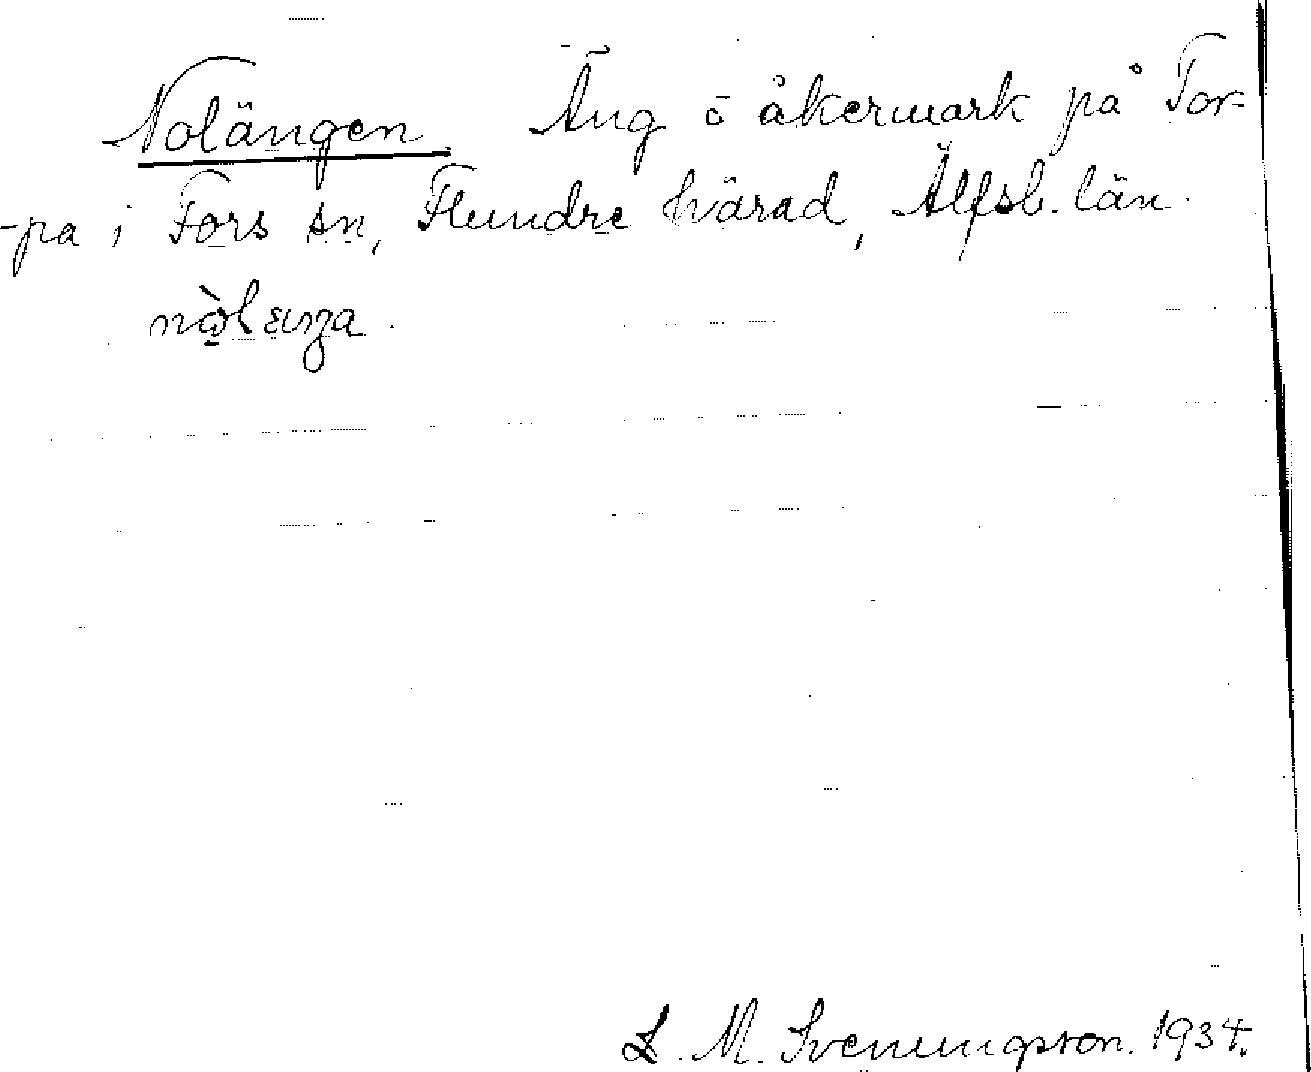 Nolängen Äng o åkermark på Tor-
-pa i Fors sn, Flundre härad, Älfsb. län.
L. M. Svenungsson. 1934.